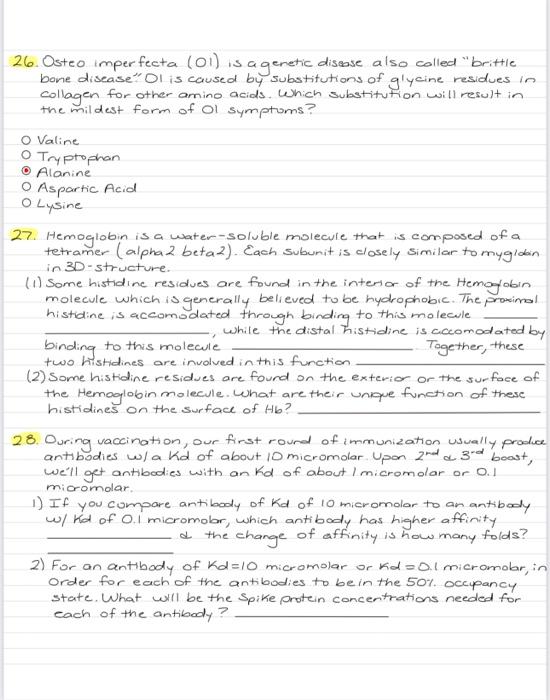 26. Osteo imperfecta (OI) is a genetic disease also called "brittle
bone disease". OI is caused by substitutions of glycine residues in
collagen for other amino acids. Which substitution will result in
the mildest form of OI symptoms?
Valine
Tryptophan
Alanine
Aspartic Acid
Lysine
27. Hemoglobin is a water-soluble molecule that is composed of a
tetramer (alpha2 beta2). Each subunit is closely similar to myglobin
in 3D-structure.
(1) Some histidine residues are found in the interior of the Hemoglobin
molecule which is generally believed to be hydrophobic. The proximal
histidine is accomodated through binding to this molecule ______
______, while the distal histidine is accomodated by
binding to this molecule ______. Together, these
two histidines are involved in this function ______
(2) Some histidine residues are found on the exterior or the surface of
the Hemoglobin molecule. What are their unique function of these
histidines on the surface of Hb? ______
28. During vaccination, our first round of immunization usually produce
antibodies w/ a Kd of about 10 micromolar. Upon 2nd & 3rd boost,
we'll get antibodies with an Kd of about 1 micromolar or 0.1
micromolar.
1) If you compare antibody of Kd of 10 micromolar to an antibody
w/ Kd of 0.1 micromolar, which antibody has higher affinity
______ & the change of affinity is how many folds?
______
2) For an antibody of Kd=10 micromolar or Kd=0.1 micromolar, in
order for each of the antibodies to be in the 50% occupancy
state. What will be the Spike protein concentrations needed for
each of the antibody? ______